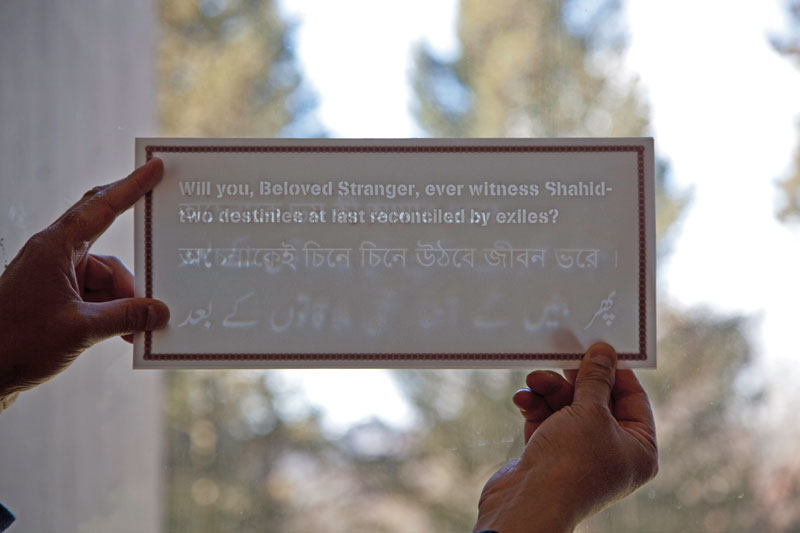 Will you, Beloved Stranger, ever witness Shahid-
two destinies at last reconciled by exiles?
অচেনাকেই চিনে চিনে উঠবে জীবন ভরে ।
پھر بنیں گے آشنا کتنی ملاقاتوں کے بعد